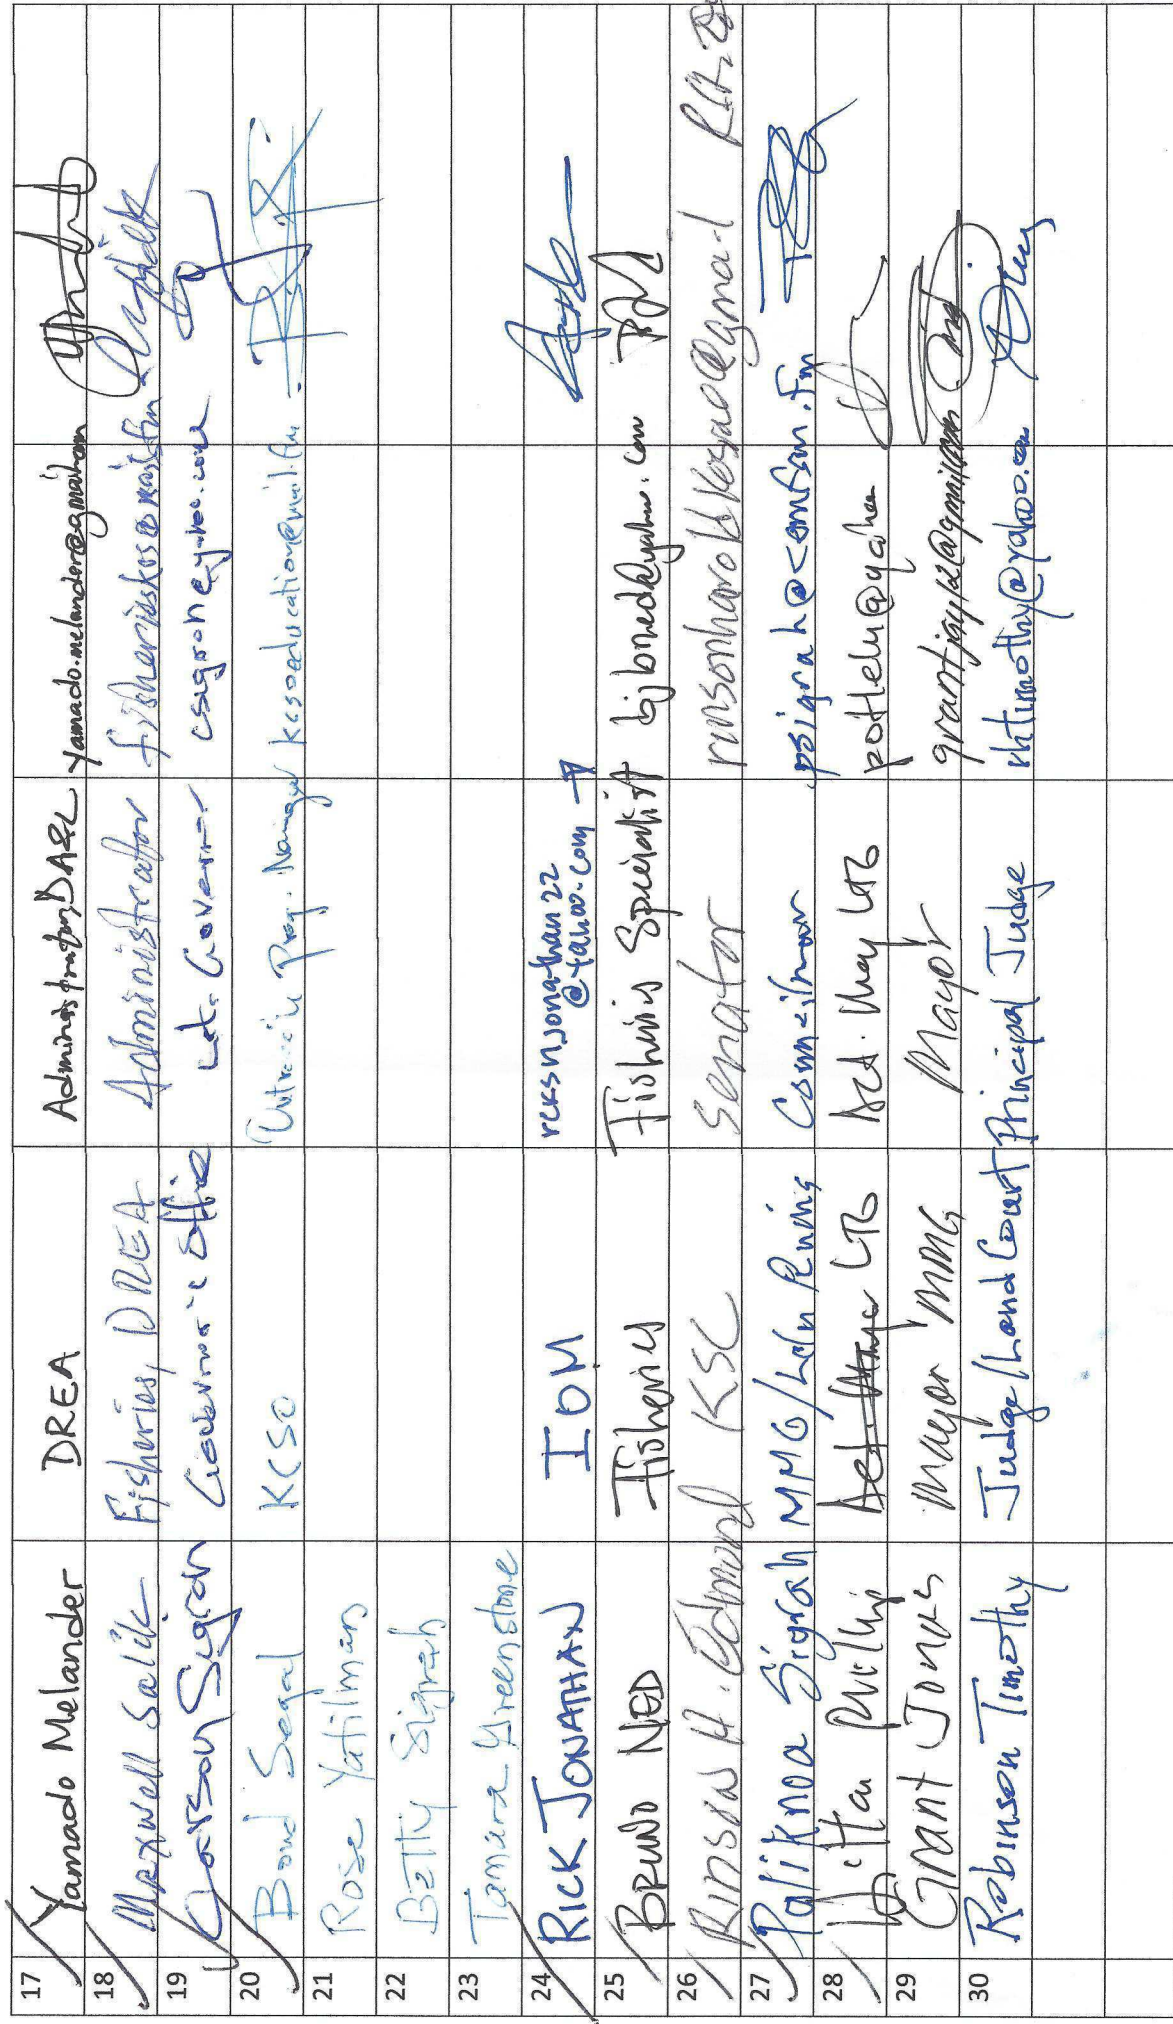 17 Yamado Melander DREA Administrator, DA&L yamado.melander@gmail.com
18 Maxwell Salik Fisheries, DREA Administrator
19 Carson Sigrah Governor's Office Lt. Governor
20 Bond Segal KCSO Outreach Prog. Manager kcsoeducation@mail.fm
21 Rose Yatilman
22 Betty Sigrah
23 Tamara Greenstone
24 RICK JONATHAN IOM rcksnjonathan22
@yahoo.com →
25 BRUNO NED Fisheries Fisheries Specialist bjbned@yahoo.com
26 Rinson H. Edmond KSL Senator
27 Paliknoa Sigrah MMG/Lelu Ruins Councilman psigrah@comfsm.fm
28 Phillip Act. May
29 Grant Jonas Mayor MMG Mayor
30 Robinson Timothy Judge/Land Court Principal Judge rhtimothy@yahoo.com